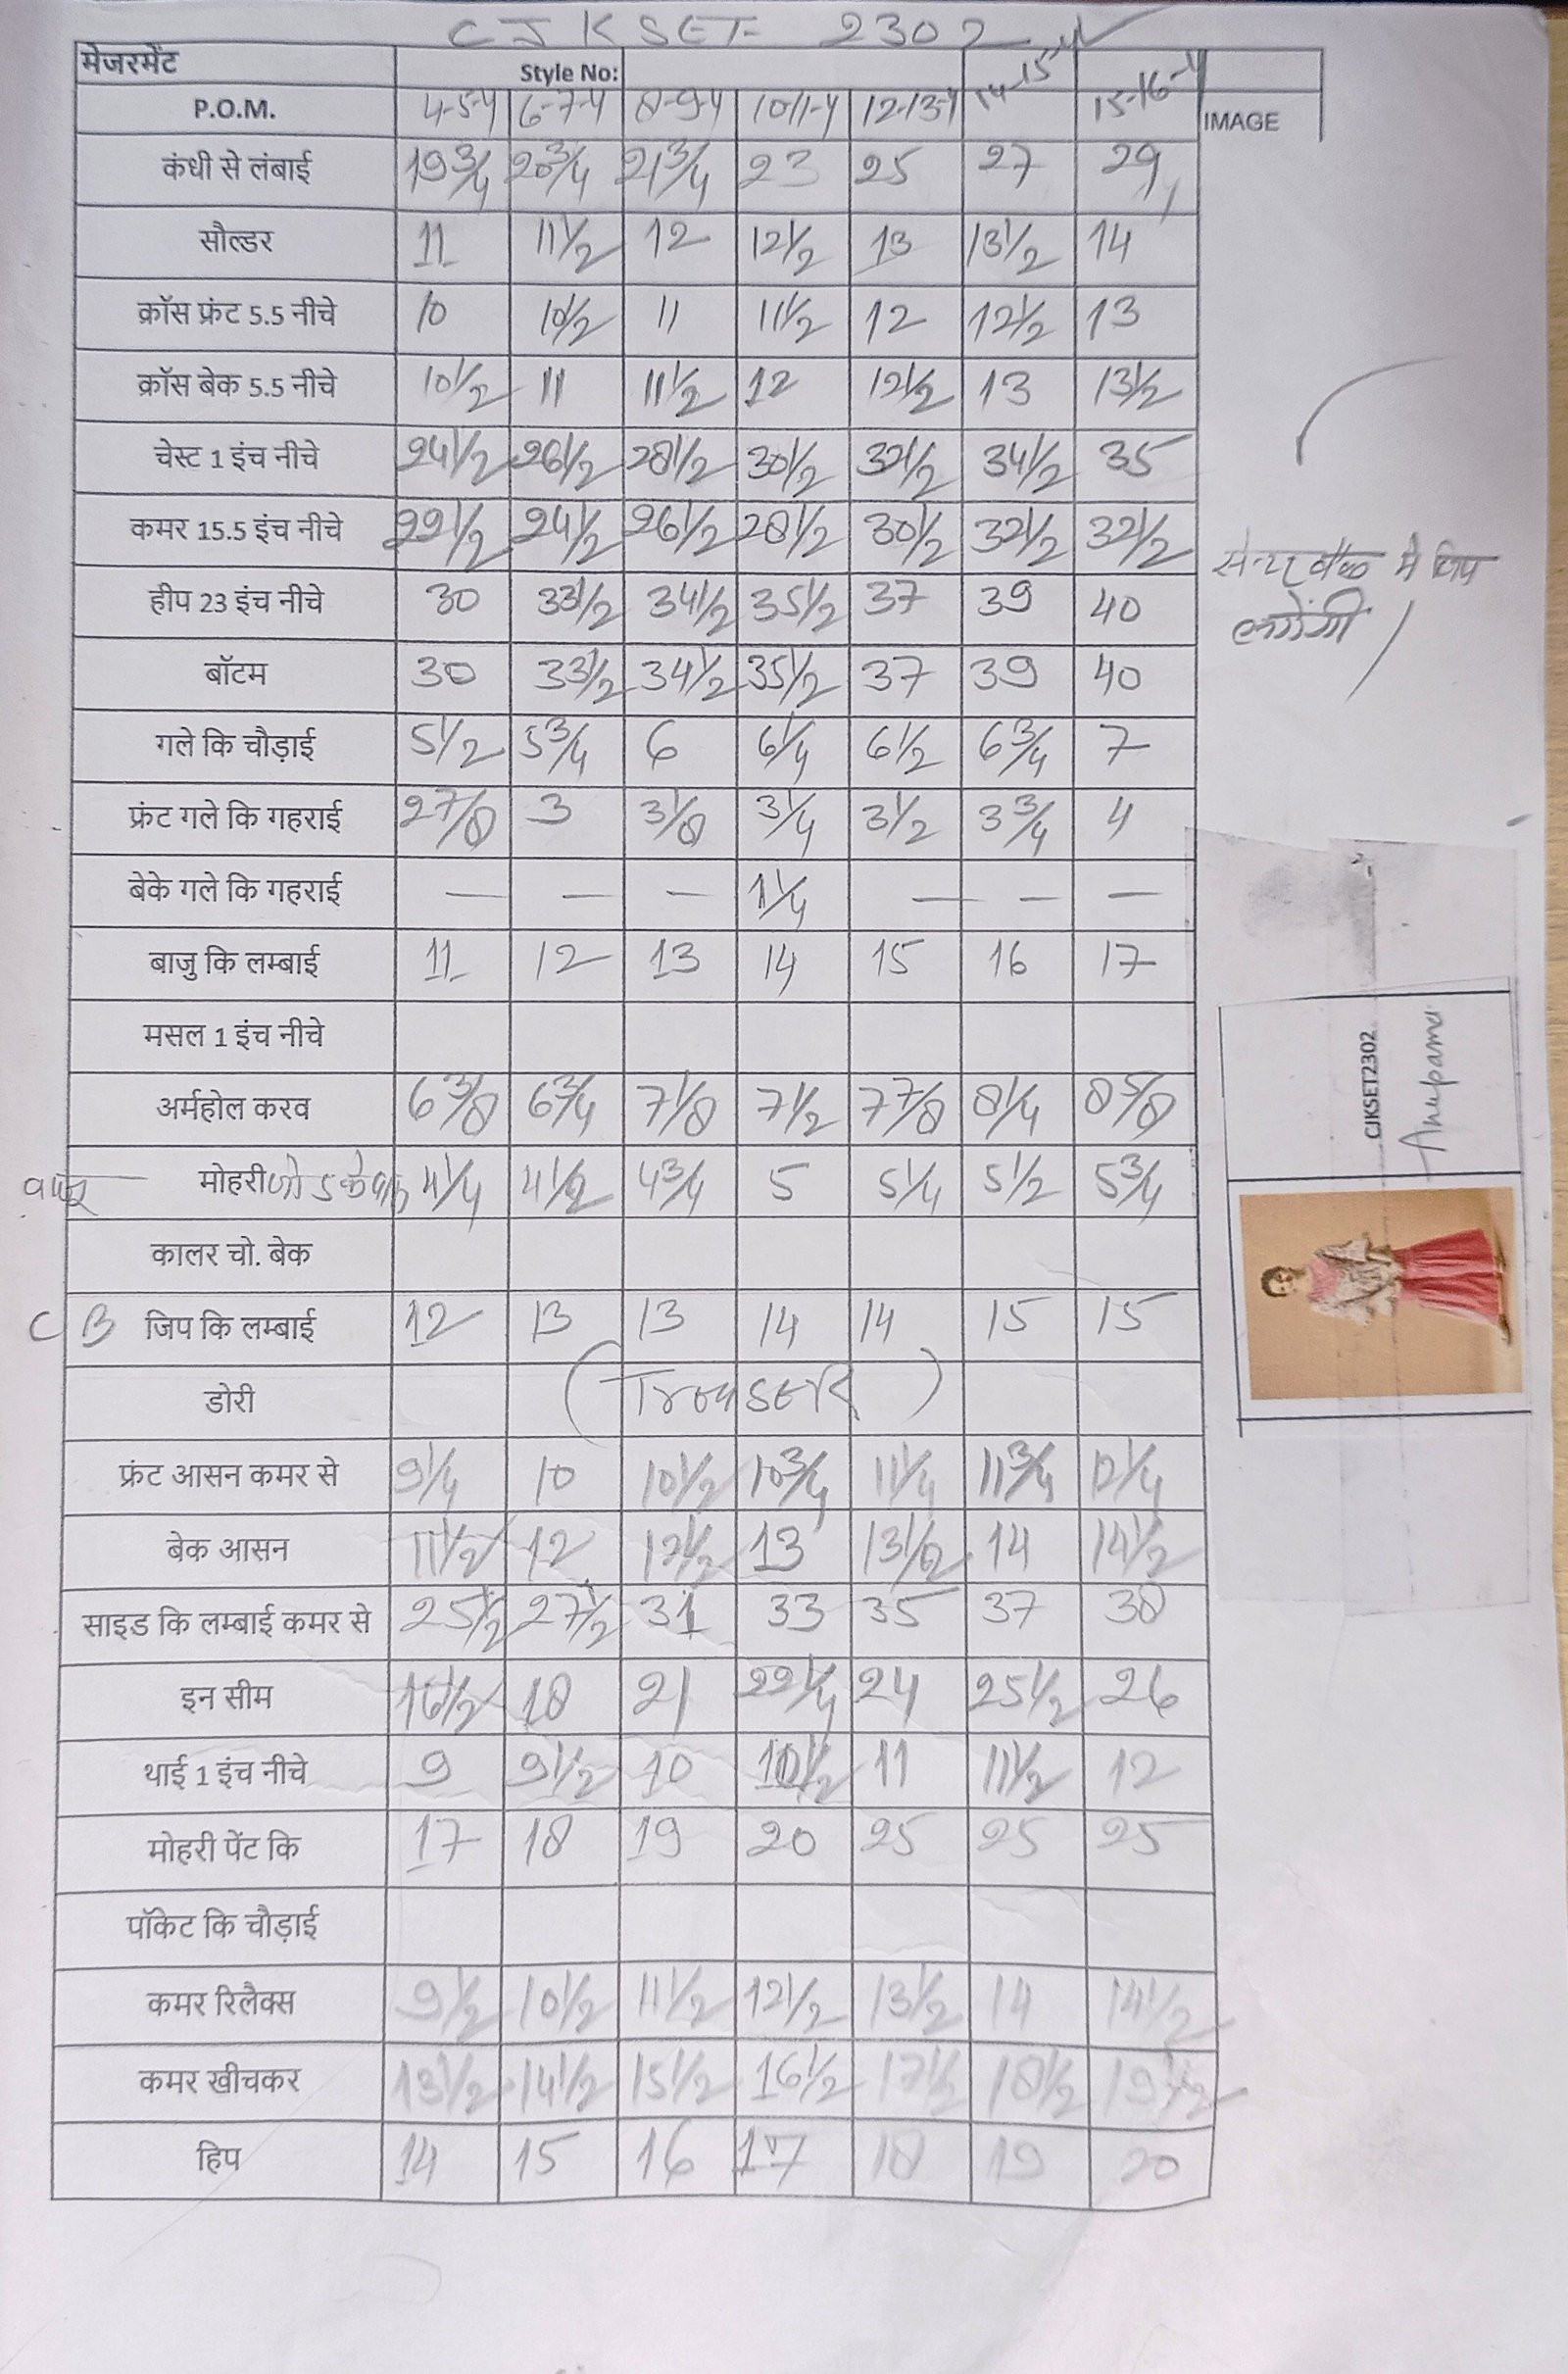 CJKSET- 2302
मेजरमेंट Style No: 14-15-Y 15-16-Y
P.O.M. 4-5-Y 6-7-Y 8-9-Y 10-11-Y 12-13-Y IMAGE
कंधी से लंबाई 19 3/4 20 3/4 21 3/4 23 25 27 29
सौल्डर 11 11 1/2 12 12 1/2 13 13 1/2 14
क्रॉस फ्रंट 5.5 नीचे 10 10 1/2 11 11 1/2 12 12 1/2 13
क्रॉस बेक 5.5 नीचे 10 1/2 11 11 1/2 12 12 1/2 13 13 1/2
चेस्ट 1 इंच नीचे 24 1/2 26 1/2 28 1/2 30 1/2 32 1/2 34 1/2 35
कमर 15.5 इंच नीचे 22 1/2 24 1/2 26 1/2 28 1/2 30 1/2 32 1/2 32 1/2
हीप 23 इंच नीचे 30 33 1/2 34 1/2 35 1/2 37 39 40
बॉटम 30 33 1/2 34 1/2 35 1/2 37 39 40
गले कि चौड़ाई 5 1/2 5 3/4 6 6 1/4 6 1/2 6 3/4 7
फ्रंट गले कि गहराई 2 7/8 3 3 1/8 3 1/4 3 1/2 3 3/4 4
बेके गले कि गहराई — — — 1 1/4 — — —
बाजु कि लम्बाई 11 12 13 14 15 16 17
मसल 1 इंच नीचे
अर्महोल करव 6 3/8 6 3/4 7 1/8 7 1/2 7 7/8 8 1/4 8 5/8
मोहरी 4 1/4 4 1/2 4 3/4 5 5 1/4 5 1/2 5 3/4
कालर चो. बेक
CB जिप कि लम्बाई 12 13 13 14 14 15 15
डोरी (TrouSER)
फ्रंट आसन कमर से 9 1/4 10 10 1/2 10 3/4 11 1/4 11 3/4 12 1/4
बेक आसन 11 1/2 12 12 1/2 13 13 1/2 14 14 1/2
साइड कि लम्बाई कमर से 25 1/2 27 1/2 31 33 35 37 38
इन सीम 16 1/2 18 21 22 1/4 24 25 1/2 26
थाई 1 इंच नीचे 9 9 1/2 10 10 1/2 11 11 1/2 12
मोहरी पेंट कि 17 18 19 20 25 25 25
पॉकेट कि चौड़ाई
कमर रिलैक्स 9 1/2 10 1/2 11 1/2 12 1/2 13 1/2 14 14 1/2
कमर खीचकर 13 1/2 14 1/2 15 1/2 16 1/2 17 1/2 18 1/2 19 1/2
हिप 14 15 16 17 18 19 20
सेन्टर बैक मे जिप
लगेंगी
CJKSET2302
Anupama